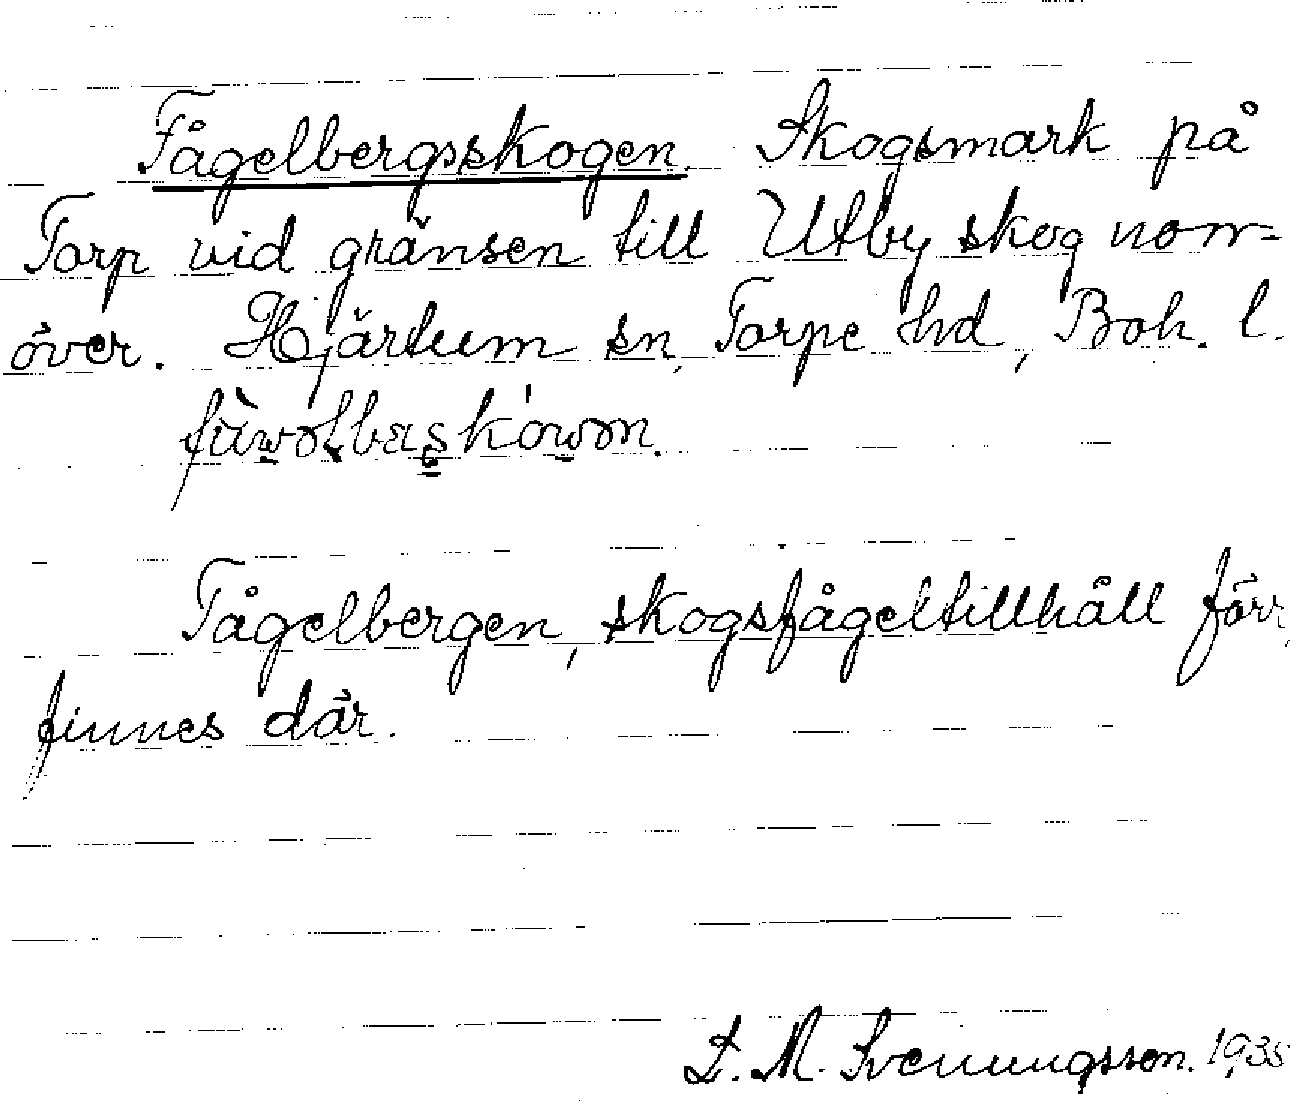 Fågelbergsskogen. Skogsmark på
Torp vid gränsen till Utby skog norr-
över. Hjärtum sn, Torpe hd, Boh. l.
Fågelbergen, skogsfågeltillhåll förr,
finnes där.
L. M. Svenungsson. 1935